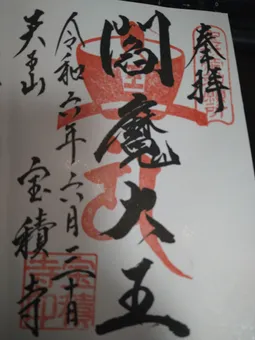 奉拝
閻魔大王
令和六年六月二十日
天王山
宝積寺